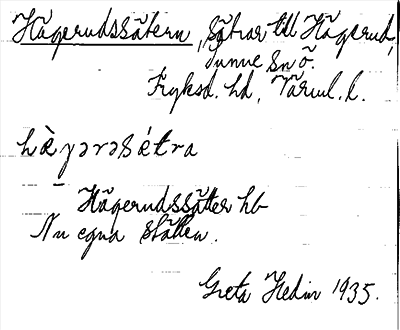 Hägerudssätern, Sätrar till Hägerud,
Sunne sn ö.
Fryksd. hd, Värml. l.
hæ̀γərəsé̩tra
Hägerudssäter hb
Nu egna ställen.
Greta Hedin 1935.